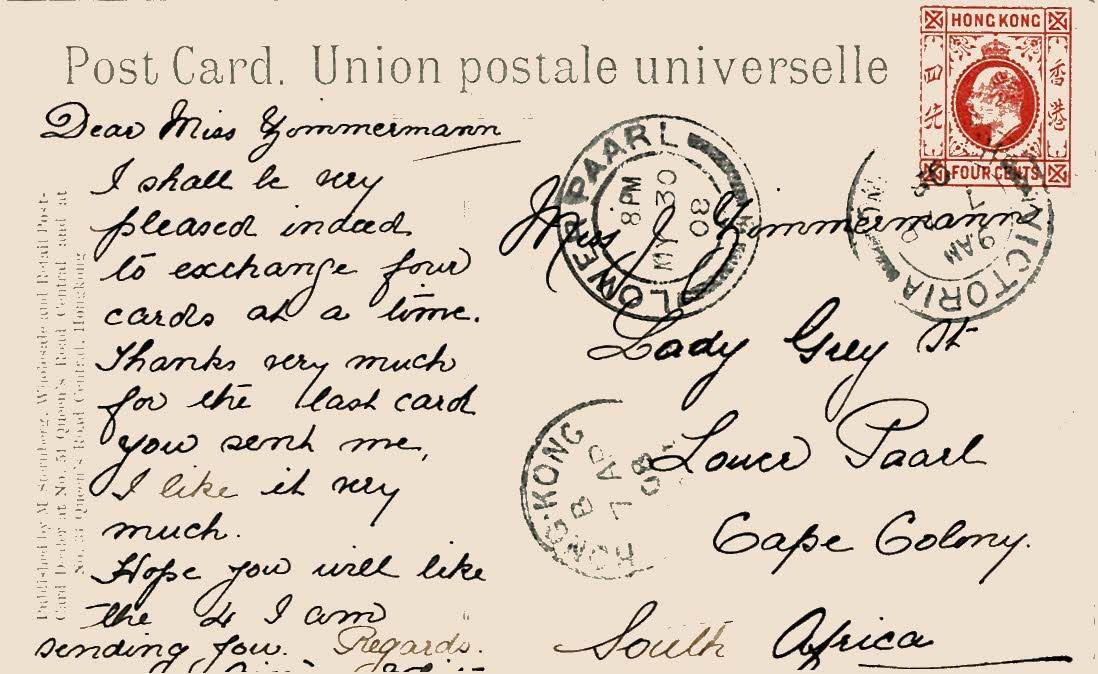 Post Card. Union postale universelle
HONG KONG
四先
香港
FOUR CENTS
Dear Miss Zommermann
I shall be very
pleased indeed
to exchange four
cards at a time.
Thanks very much
for the last card
you sent me,
I like it very
much.
Hope you will like
the 4 I am
sending you. Regards.
Published by M. Sternberg, Wholesale and Retail Post-
Card Dealer at No. 51 Queen's Road Central and at
No. 34 Queen's Road Central, Hongkong
LOWER PAARL
8 PM
MY 30
08
VICTORIA
9 AM
HONG-KONG
B
7 AP
08
Miss Zommermann
Lady Grey St
Lower Paarl
Cape Colony.
South Africa